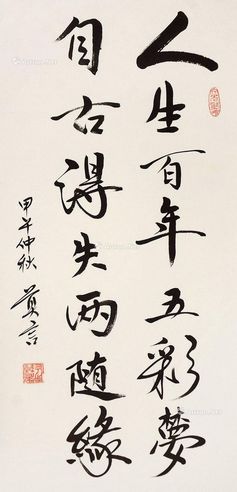 人生百年五彩夢
自古得失两随緣
甲午仲秋 莫言